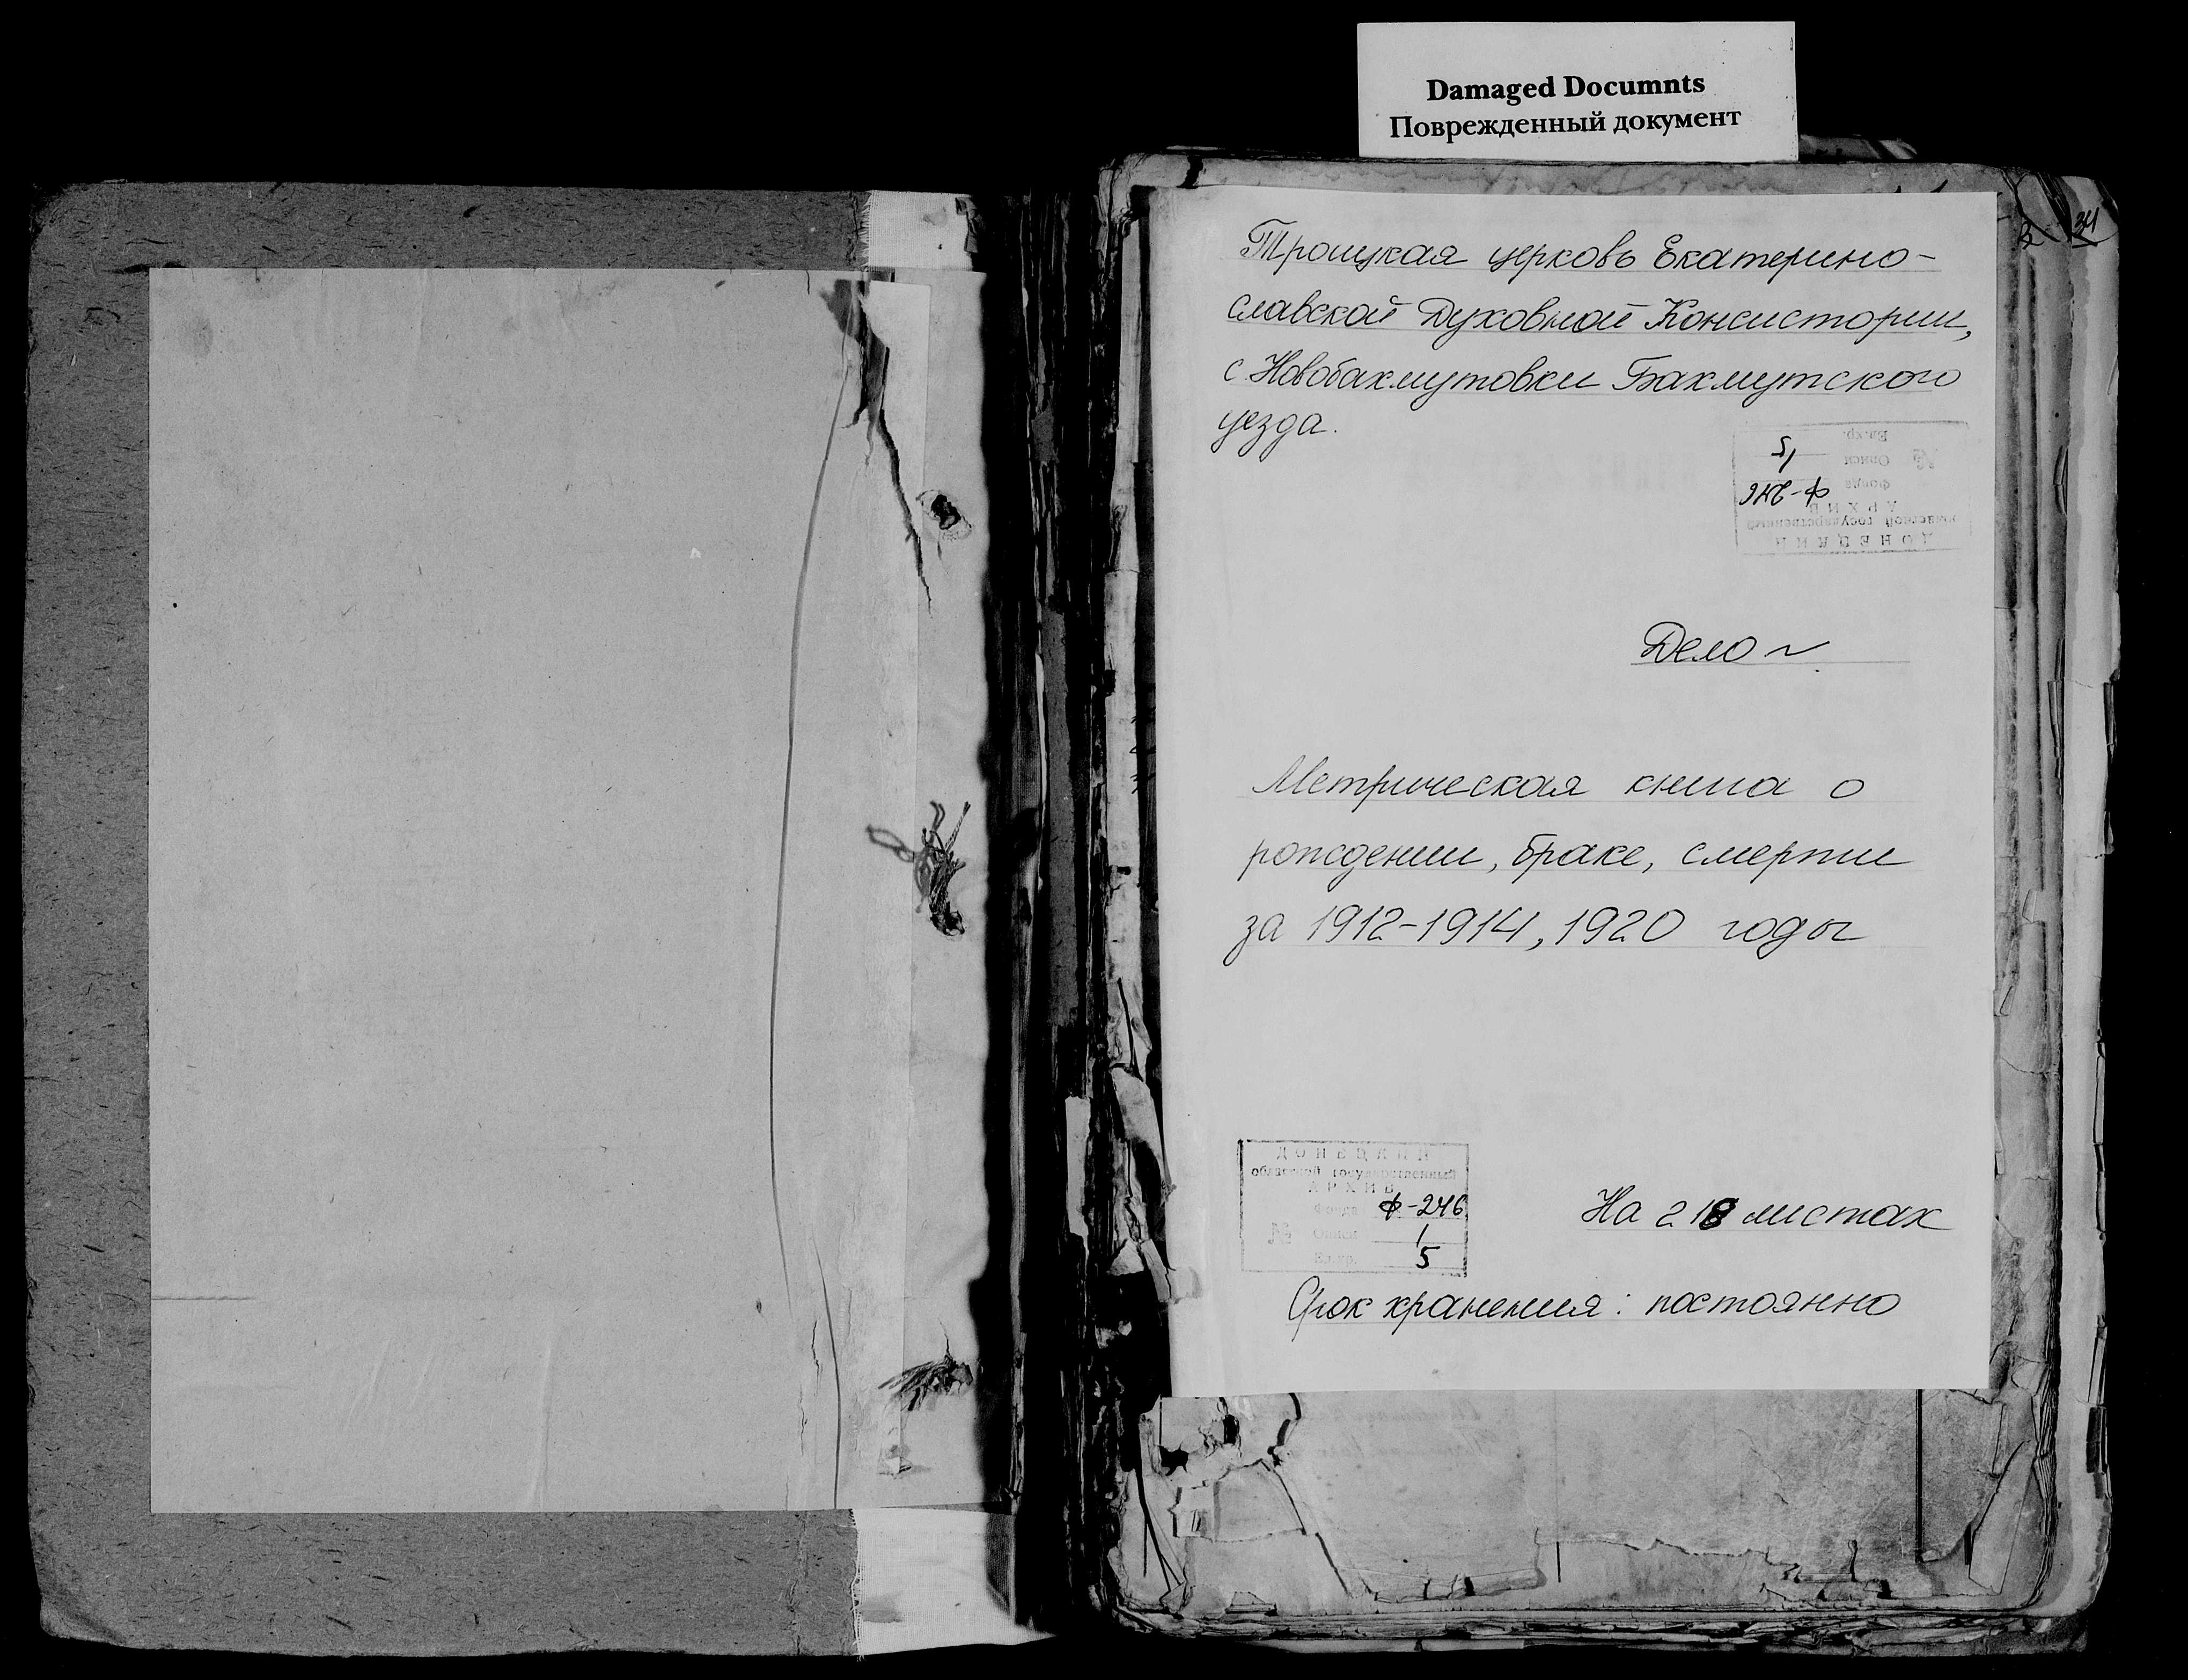 Damaged Documnts
Поврежденный документ
34
Троицкая церковь Екатерино-
славской Духовной Консистории,
с. Новобахмутовки Бахмутского
уезда.
ДОНЕЦКИЙ
областной государственный
АРХИВ
Фонда Ф-246
№ Описи 1
Ед.хр. 5
Дело №
Метрическая книга о
рождении, браке, смерти
за 1912-1914, 1920 годы
ДОНЕЦКИЙ
областной государственный
АРХИВ
Фонда Ф-246
№ Описи 1
Ед.хр. 5
На 218 листах
Срок хранения: постоянно